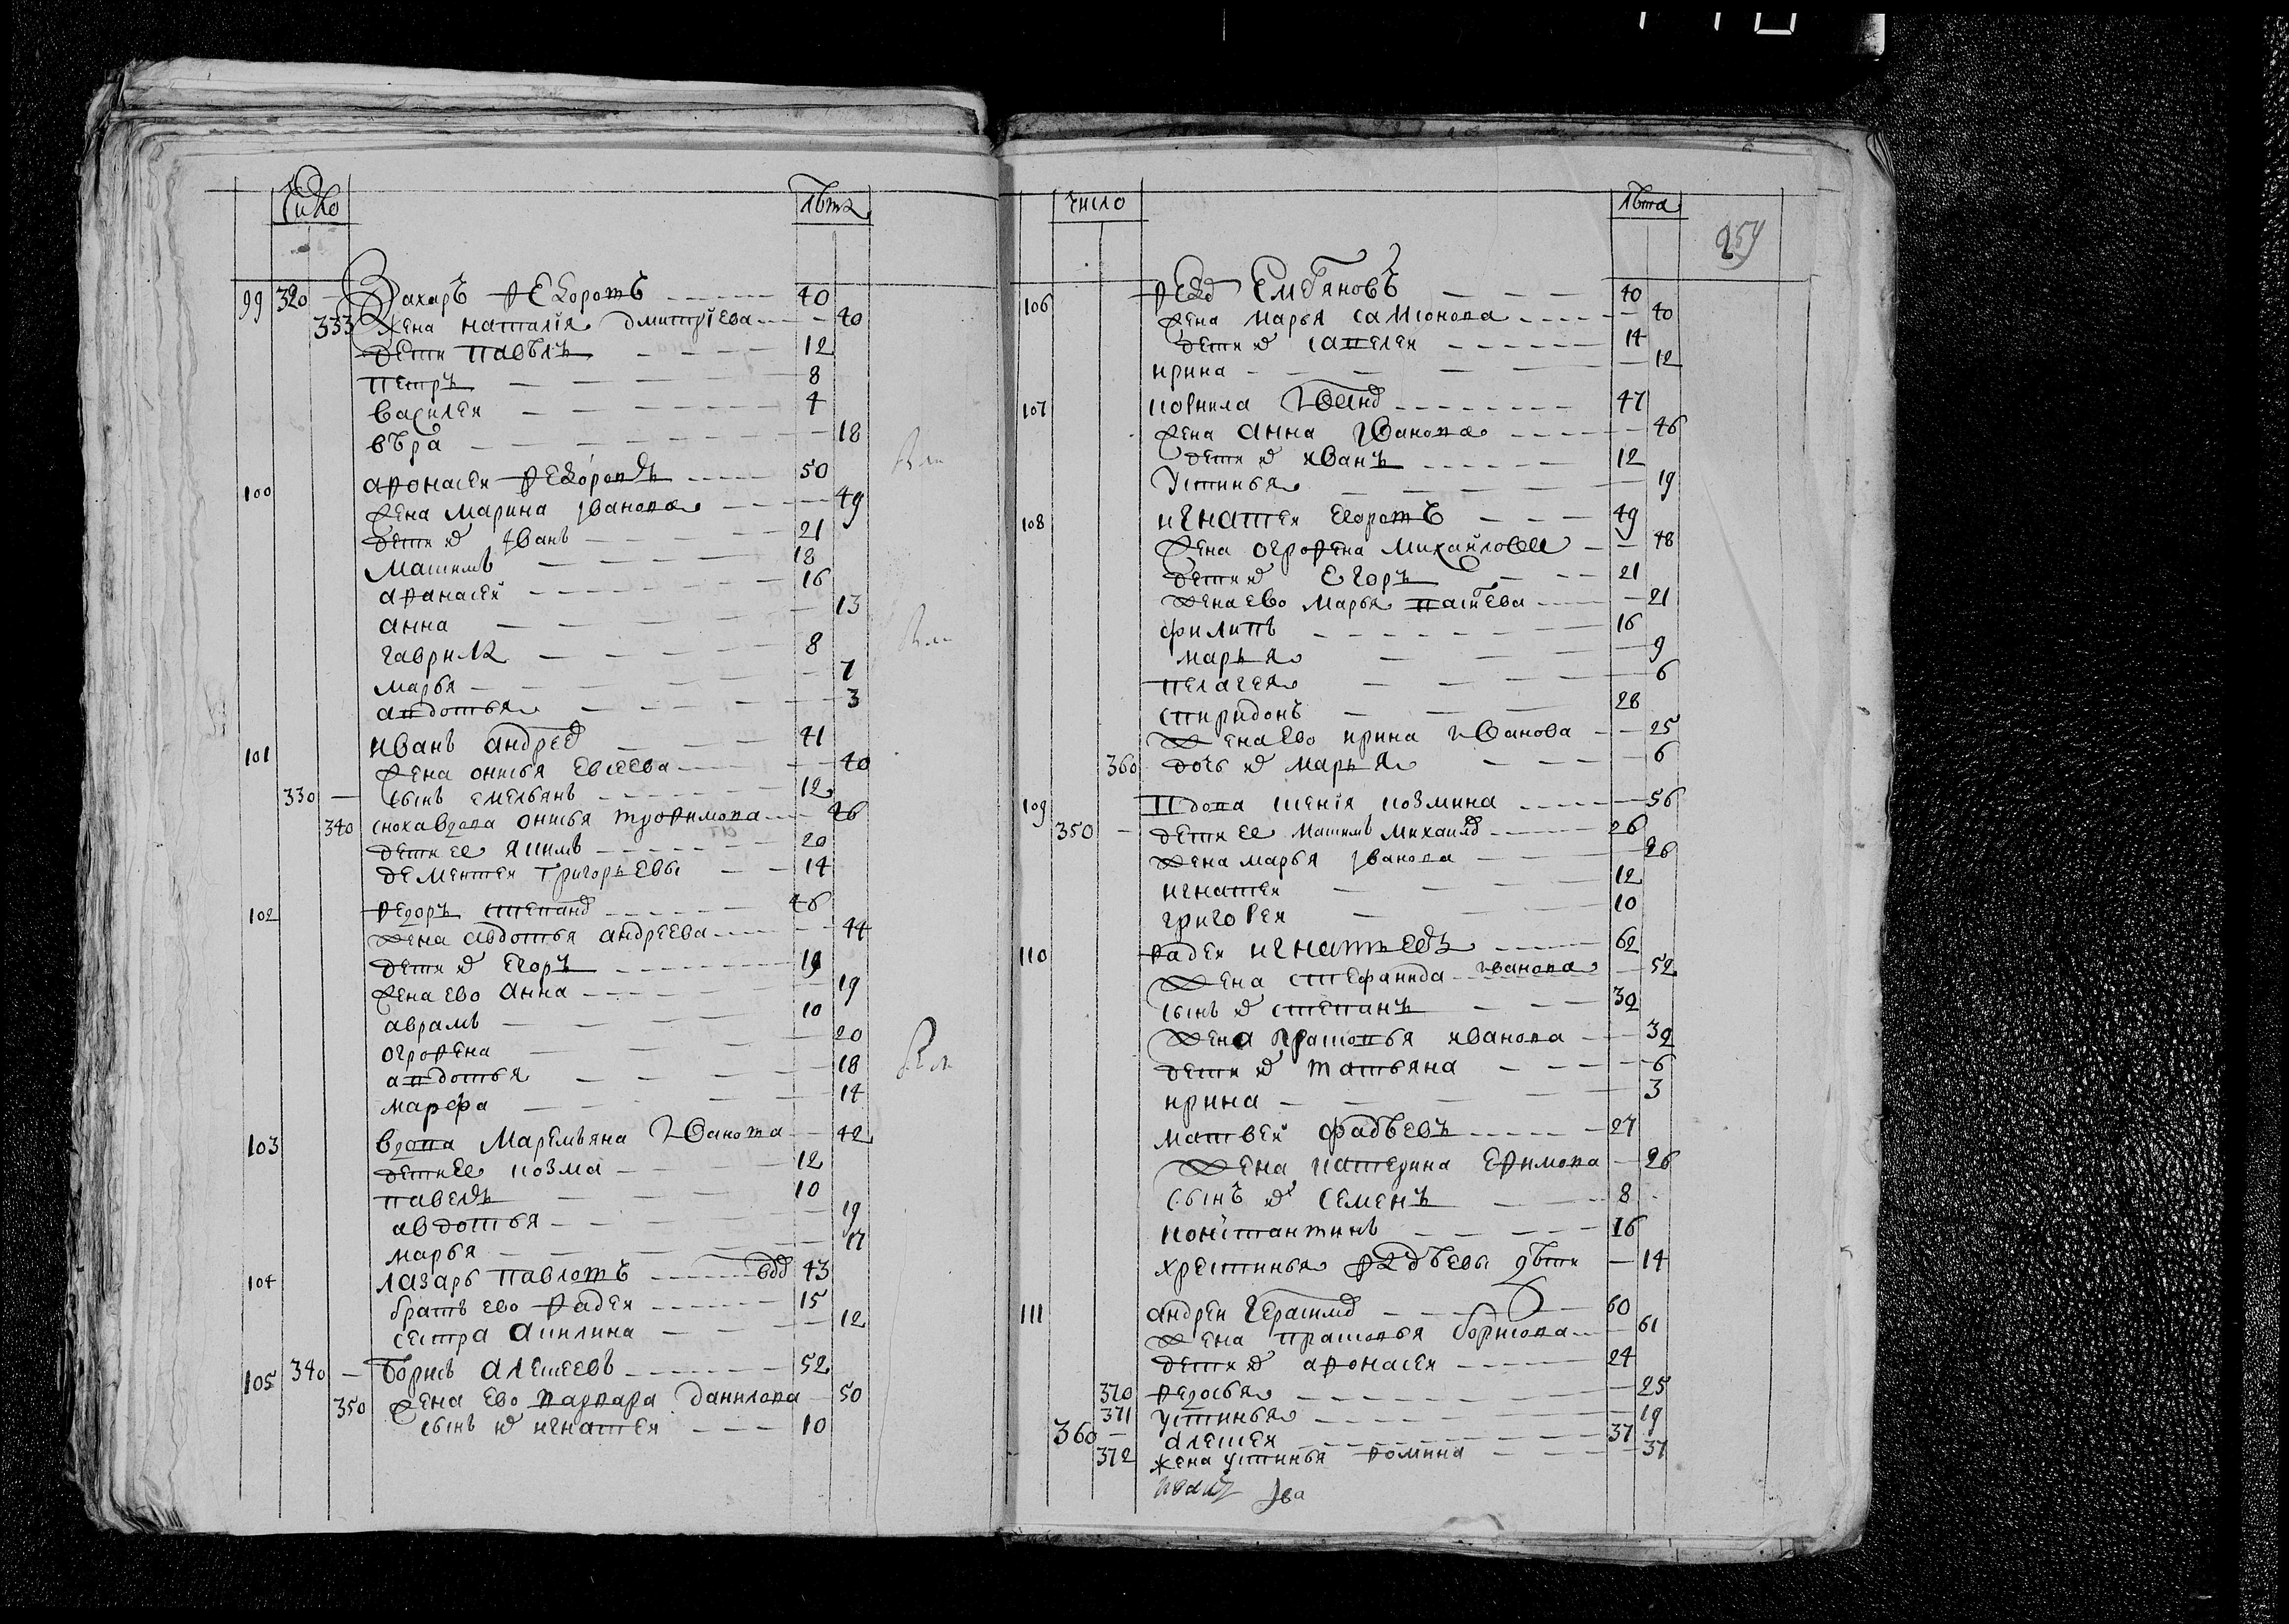 Число лѣта
99 320 — Захаръ Федоротъ 40
333 Жена наталія дмитріева 40
дети павѣлъ 12
петръ 8
василеи 4
вѣра 18
100 афонасеи Федоровъ 50
Жена марина ивановa 49
дети ив иванъ 21
Максимъ 18
афанасеи 16
анна 13
гаврила 8
марья 7
авдотья 3
101 иванъ андрее 41
Жена онисья евсеева 40
330 — сынъ емельянъ 12
340 сноха вдова онисья трофимова 46
дети ее якимъ 20
дементеи григорьевы 14
102 Федоръ степано 46
Жена авдотья андреева 44
дети ев егоръ 19
Жена ево анна 19
аврамъ 10
огрофена 20
авдотья 18
марфа 14
103 вдова маремьяна иванова 42
дети ее козма 12
павелъ 10
авдотья 19
марья 17
104 лазарь павлотъ вдо 43
братъ ево фадеи 15
сестра акилина 12
105 340 — борисъ алексеевъ 52
350 Жена ево варвара данилова 50
сынъ ев игнатеи 10
число лѣта
254
106 Федо емельяновъ 40
Жена марья самсонова 40
дети ев савелеи 14
ирина 12
107 корнила ивано 47
Жена анна иванова 46
дети ев иванъ 12
устинья 19
108 игнатеи егоротъ 49
Жена огрофена михаилова 48
дети ев егоръ 21
Жена ево марья 21
филипъ 16
марья 9
пелагея 6
спиридонъ 28
Жена ево ирина иванова 25
360 дочь ев марья 6
109 вдова ксенія козмина 56
350 — дети ее максимъ михаило 26
Жена марья иванова 26
игнатеи 12
григореи 10
110 фадеи игнатьевъ 62
Жена стефанида иванова 52
сынъ ев степанъ 32
Жена прасковья иванова 32
дети ев татьяна 6
ирина 3
матвеи фадѣевъ 27
Жена катерина ефимова 26
сынъ ев семенъ 8
константинъ 16
хрестинья фадѣевы дѣти 14
111 андреи герасимо 60
Жена прасковья борисова 61
дети ев афонасеи 24
370 федосья 25
371 устинья 19
360 — алексеи 37
372 жена устинья фомина 37